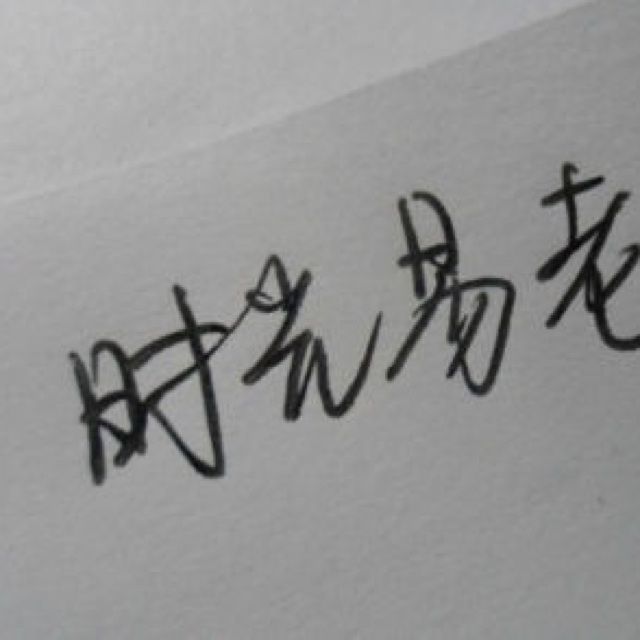 时光易老